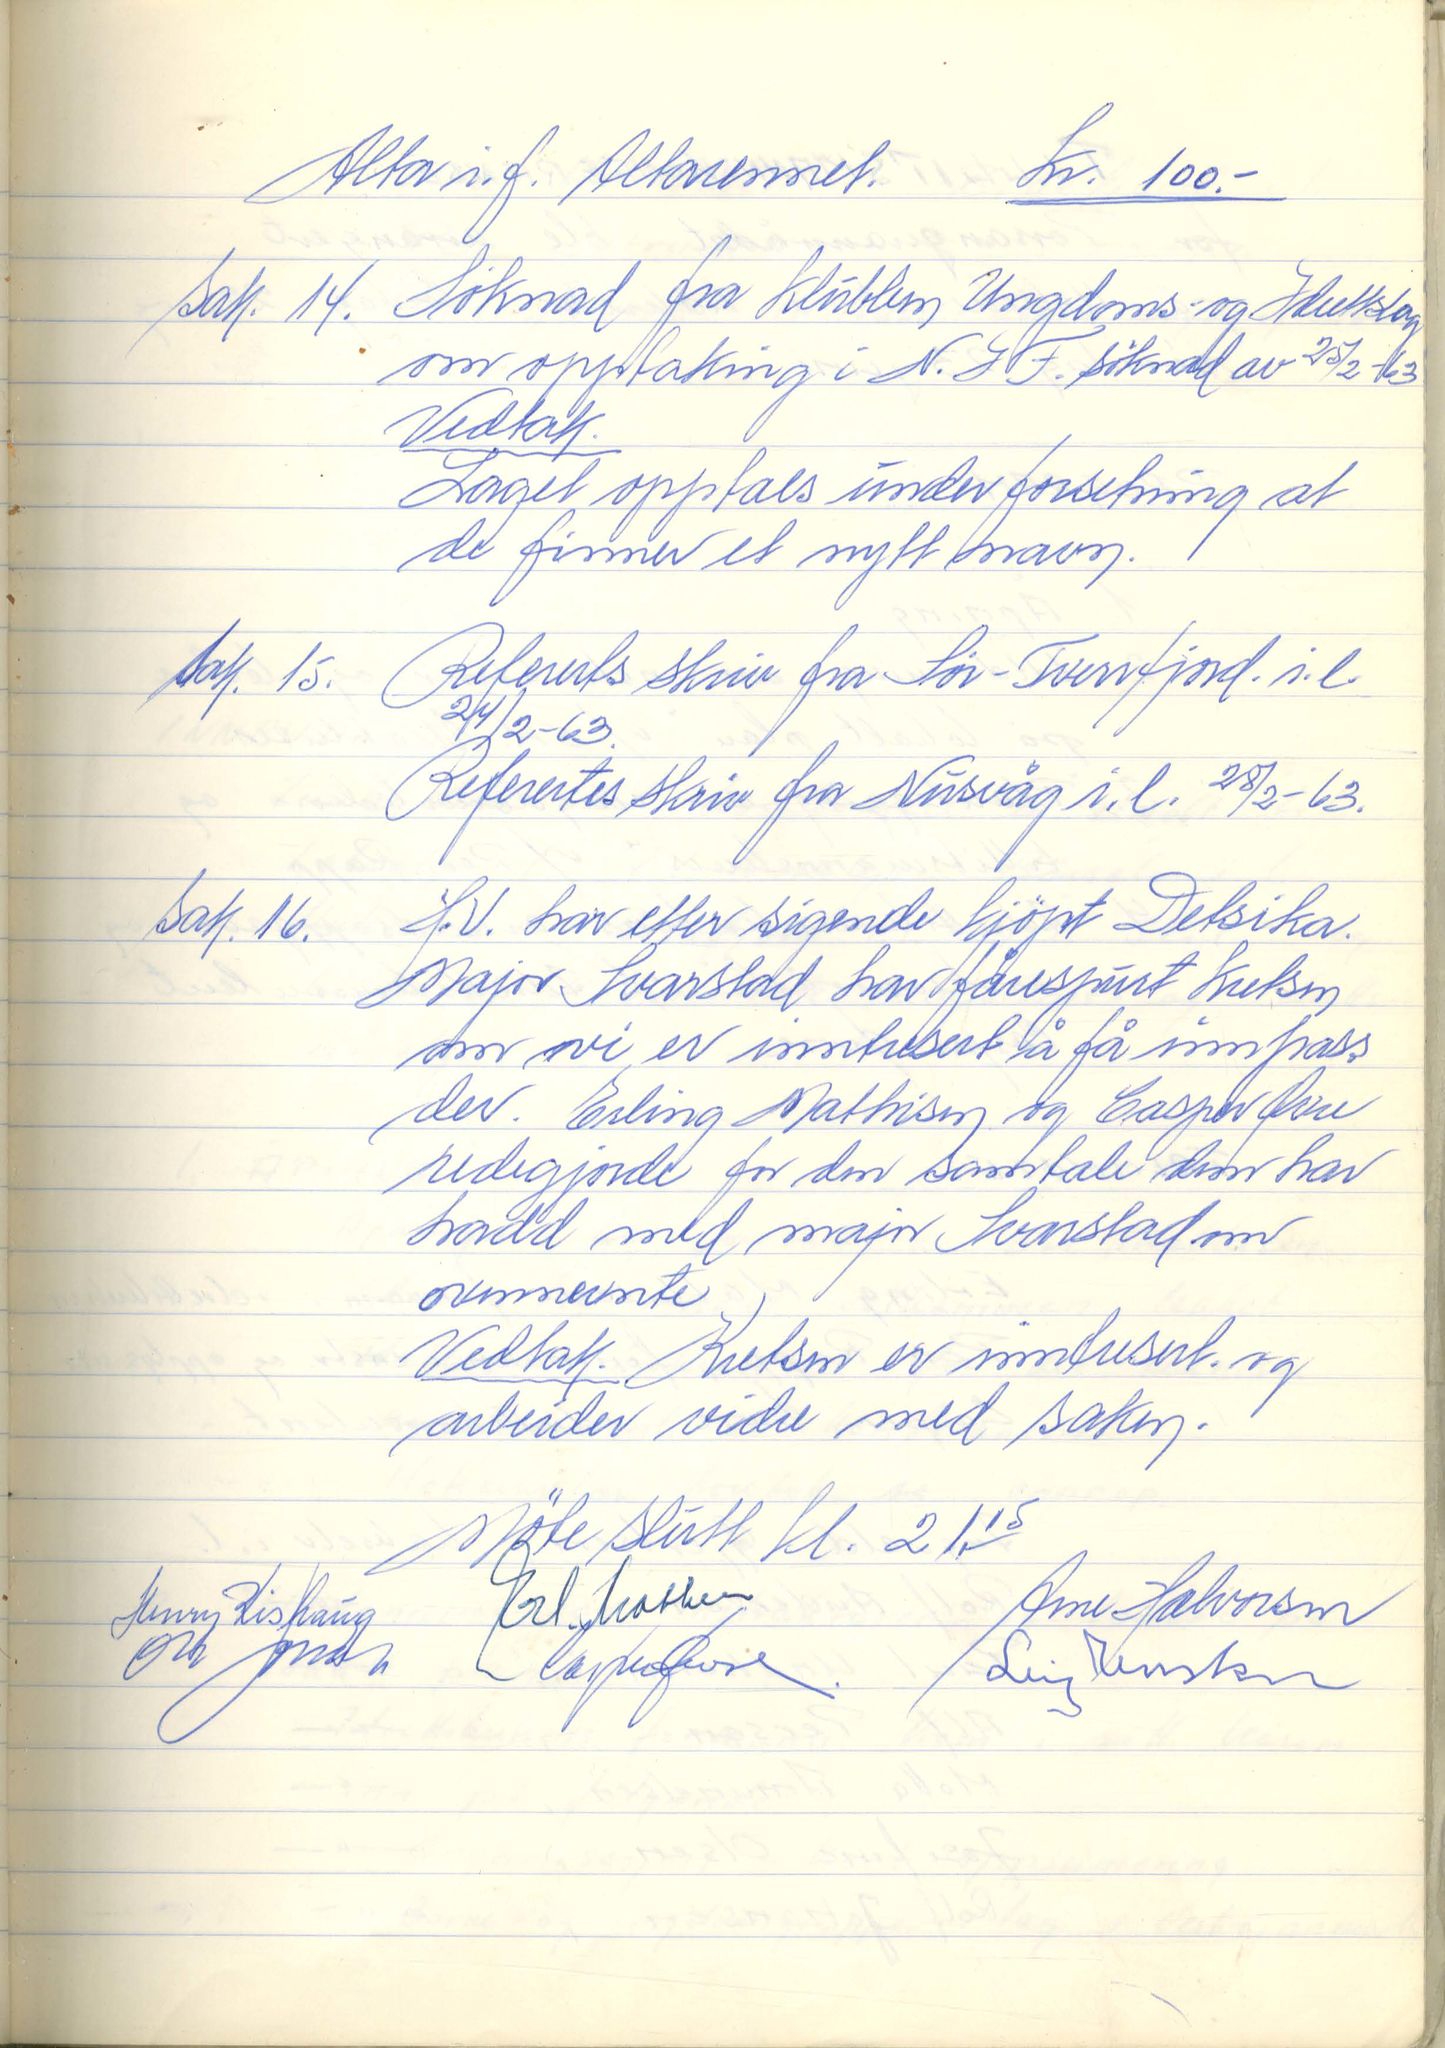 Alta i.f. Altarennet. Kr. 100.-
Sak. 14. Söknad fra Klubben Ungdoms- og Idrettslag
om opptaking i N.I.F. söknad av 25/2-63
Vedtak.
Laget opptaes under forsetning at
de finner et nytt navn.
Sak. 15. Referets skriv fra Sör-Tverrfjord. i.l.
24/2-63.
Referertes skriv fra Nusvåg i.l. 28/2-63.
Sak. 16. H.V. har etter sigende kjöpt Detsika.
Major Svarstad har forespurt kretsen
om vi er inntresert å få innpass
der. Erling Mathisen og Casper
redegjorde for den samtale dem har
hadd med major Svarstad om
ovennevnte
Vedtak. Kretsen er inntresert. og
arbeider vidre med saken.
Möte slutt kl. 21.15
Henry Erl. Arne Halvorsen